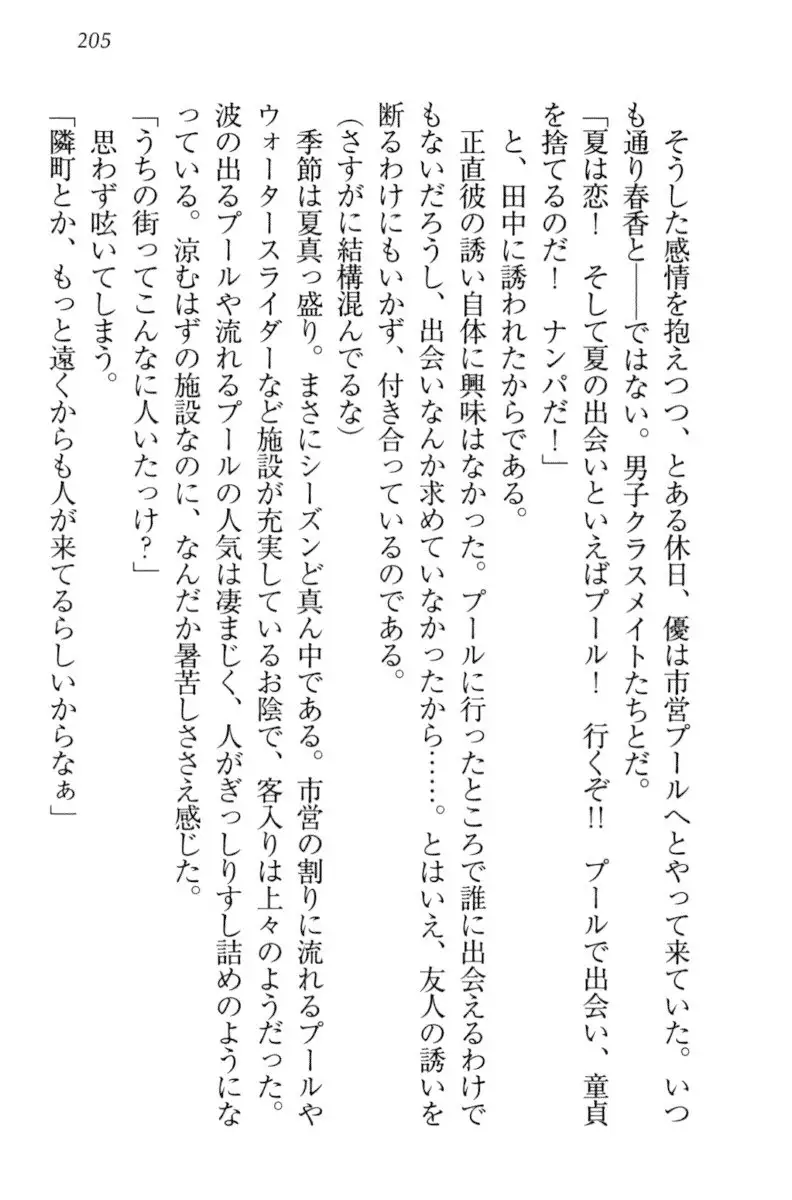 205
そうした感情を抱えつつ、とある休日、優は市営プールへとやって来ていた。いつ
も通り春香と――ではない。男子クラスメイトたちとだ。
「夏は恋！　そして夏の出会いといえばプール！　行くぞ!!　プールで出会い、童貞
を捨てるのだ！　ナンパだ！」
と、田中に誘われたからである。
正直彼の誘い自体に興味はなかった。プールに行ったところで誰に出会えるわけで
もないだろうし、出会いなんか求めていなかったから……。とはいえ、友人の誘いを
断るわけにもいかず、付き合っているのである。
(さすがに結構混んでるな)
季節は夏真っ盛り。まさにシーズンど真ん中である。市営の割りに流れるプールや
ウォータースライダーなど施設が充実しているお陰で、客入りは上々のようだった。
波の出るプールや流れるプールの人気は凄まじく、人がぎっしりすし詰めのようにな
っている。涼むはずの施設なのに、なんだか暑苦しささえ感じた。
「うちの街ってこんなに人いたっけ？」
思わず呟いてしまう。
「隣町とか、もっと遠くからも人が来てるらしいからなぁ」